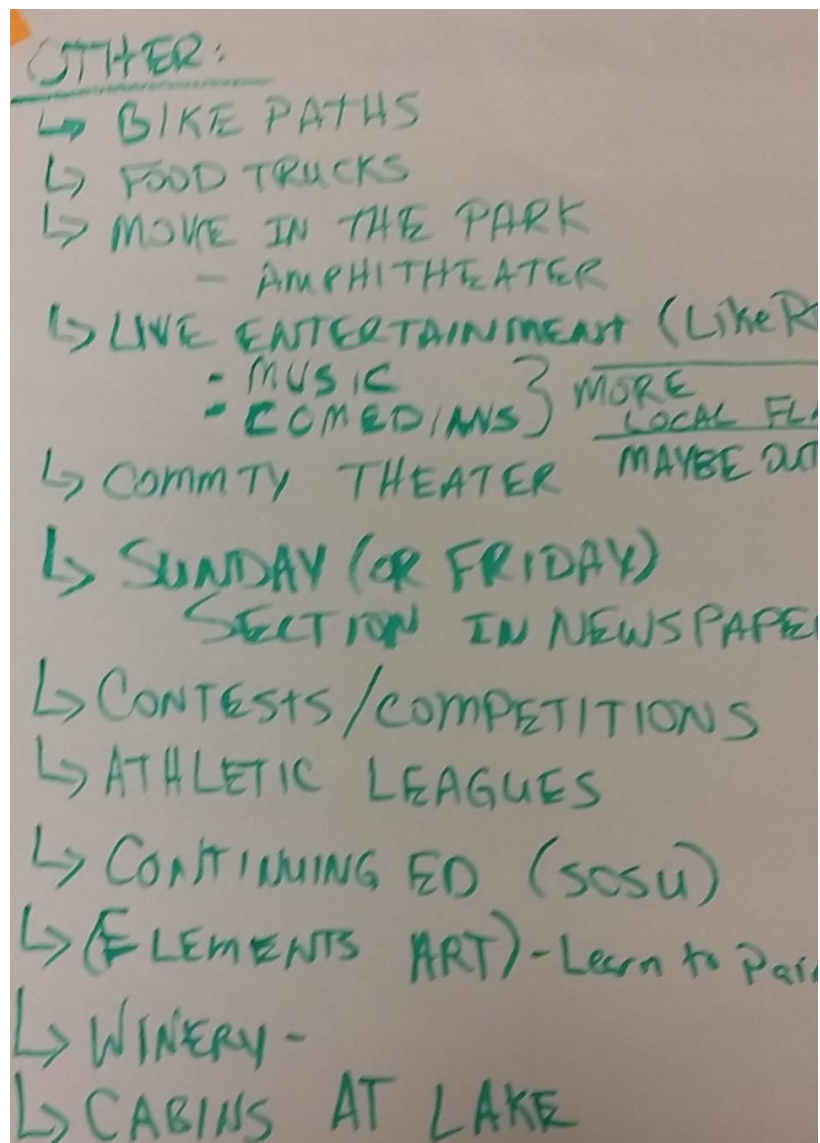 OTHER:
↳ BIKE PATHS
↳ FOOD TRUCKS
↳ MOVIE IN THE PARK
- AMPHITHEATER
↳ LIVE ENTERTAINMENT (Like
- MUSIC
- COMEDIANS } MORE
LOCAL
MAYBE OUT
↳ COMMTY THEATER
↳ SUNDAY (OR FRIDAY)
SECTION IN NEWSPAPE
↳ CONTESTS/COMPETITIONS
↳ ATHLETIC LEAGUES
↳ CONTINUING ED (SCSU)
↳ (ELEMENTS ART) - Learn to
↳ WINERY -
↳ CABINS AT LAKE